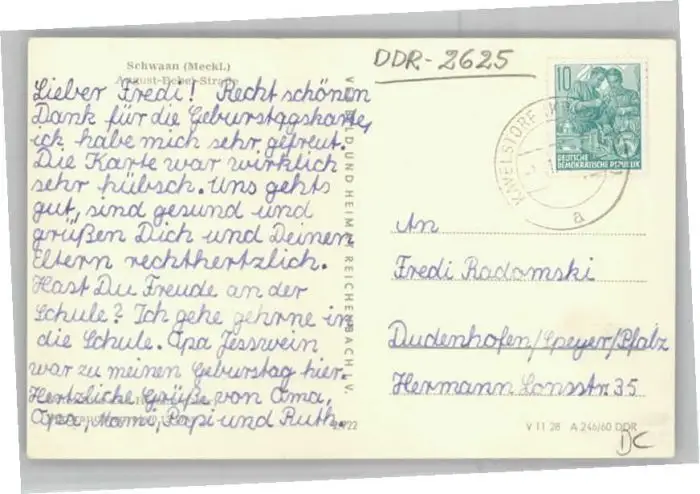 Schwaan (Meckl.)
August-Bebel-Straße
Lieber Fredi! Recht schönen
Dank für die Geburstagskarte,
ich habe mich sehr gefreut.
Die Karte war wirklich
sehr hübsch. Uns gehts
gut, sind gesund und
grüßen Dich und Deinen
Eltern rechthertzlich.
Hast Du Freude an der
Schule? Ich gehe gehrne in
die Schule. Opa Jesswein
war zu meinen Geburstag hier.
Hertzliche Grüße von Oma,
Opa, Mami, Papi und Ruth.
BILD UND HEIMAT REICHENBACH I. V.
DDR-2625
10
DEUTSCHE
DEMOKRATISCHE REPUBLIK
KAVELSTORF
a
An
Fredi Radomski
Dudenhofen/Speyer/Pfalz
Hermann Lonsstr. 35
V 11 28 A 246/60 DDR
DC